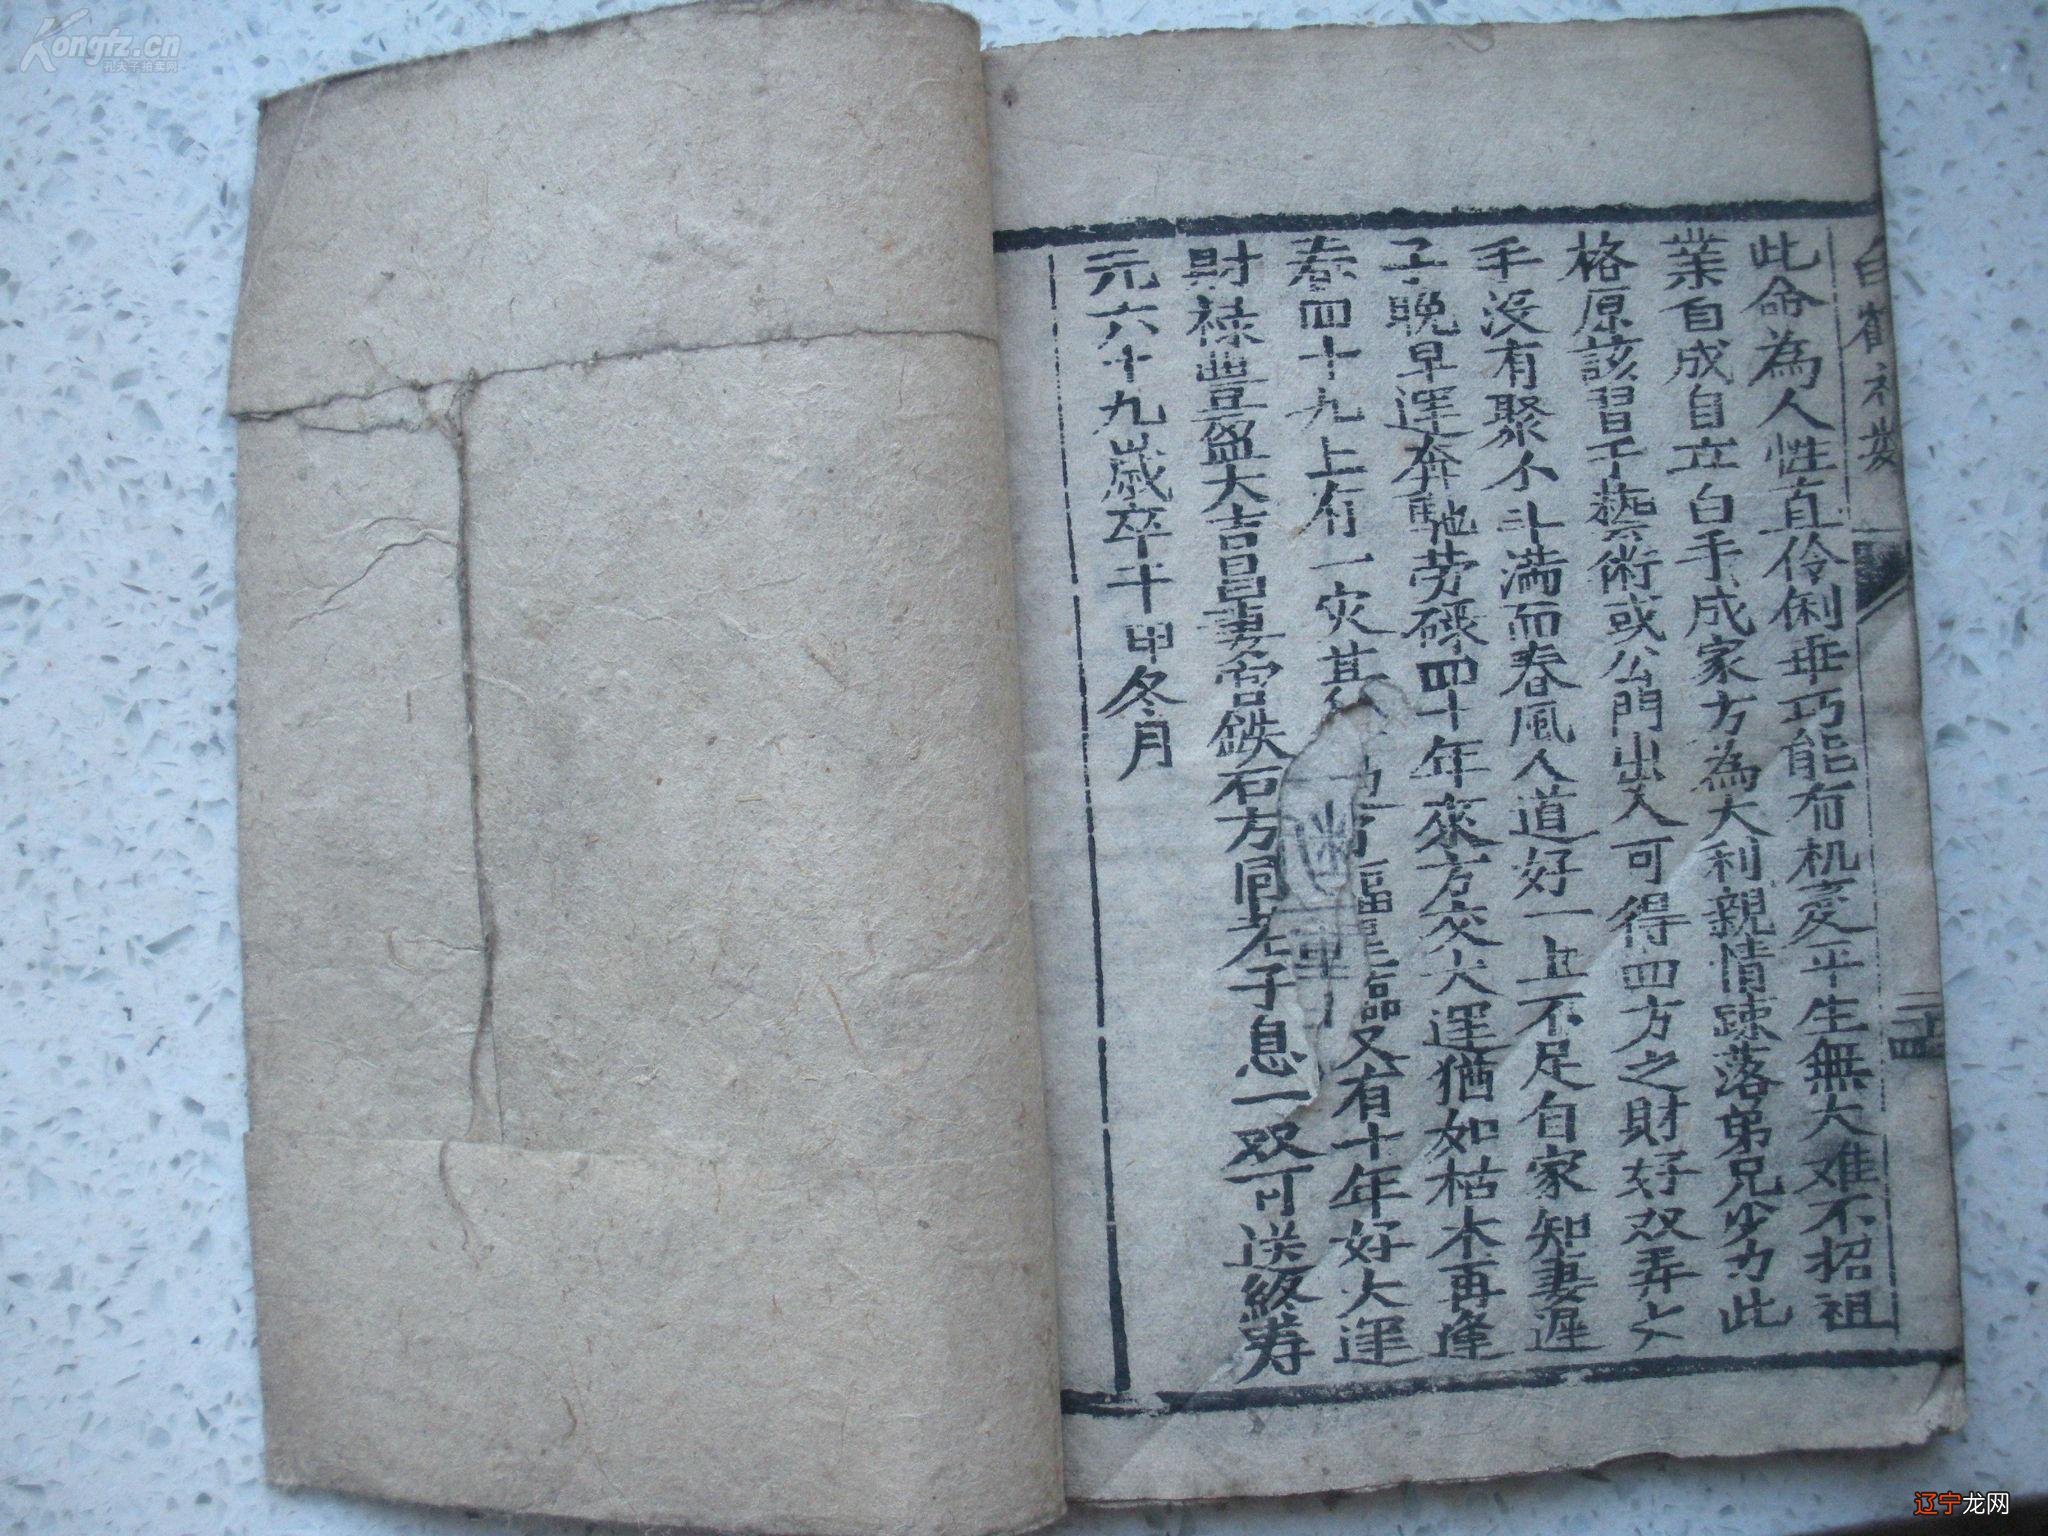 此命為人性直伶俐乖巧能有机变平生無大难不招祖
業自成自立白手成家方為大利親情踈落弟兄少力此
格原該習手藝術或公門出入可得四方之財好双弄
手沒有聚不斗满而春風人道好一上不足自家知妻遲
子晚早運奔馳劳碌四十年來方交大運猶如枯木再逢
春四十九上有一灾其 又有十年好大運
財祿豐盈大吉昌妻宮鉄石方同老子息一双可送終寿
元六十九歲卒于甲冬月
二十四
Kongfz.cn
孔夫子拍卖网
辽宁龙网